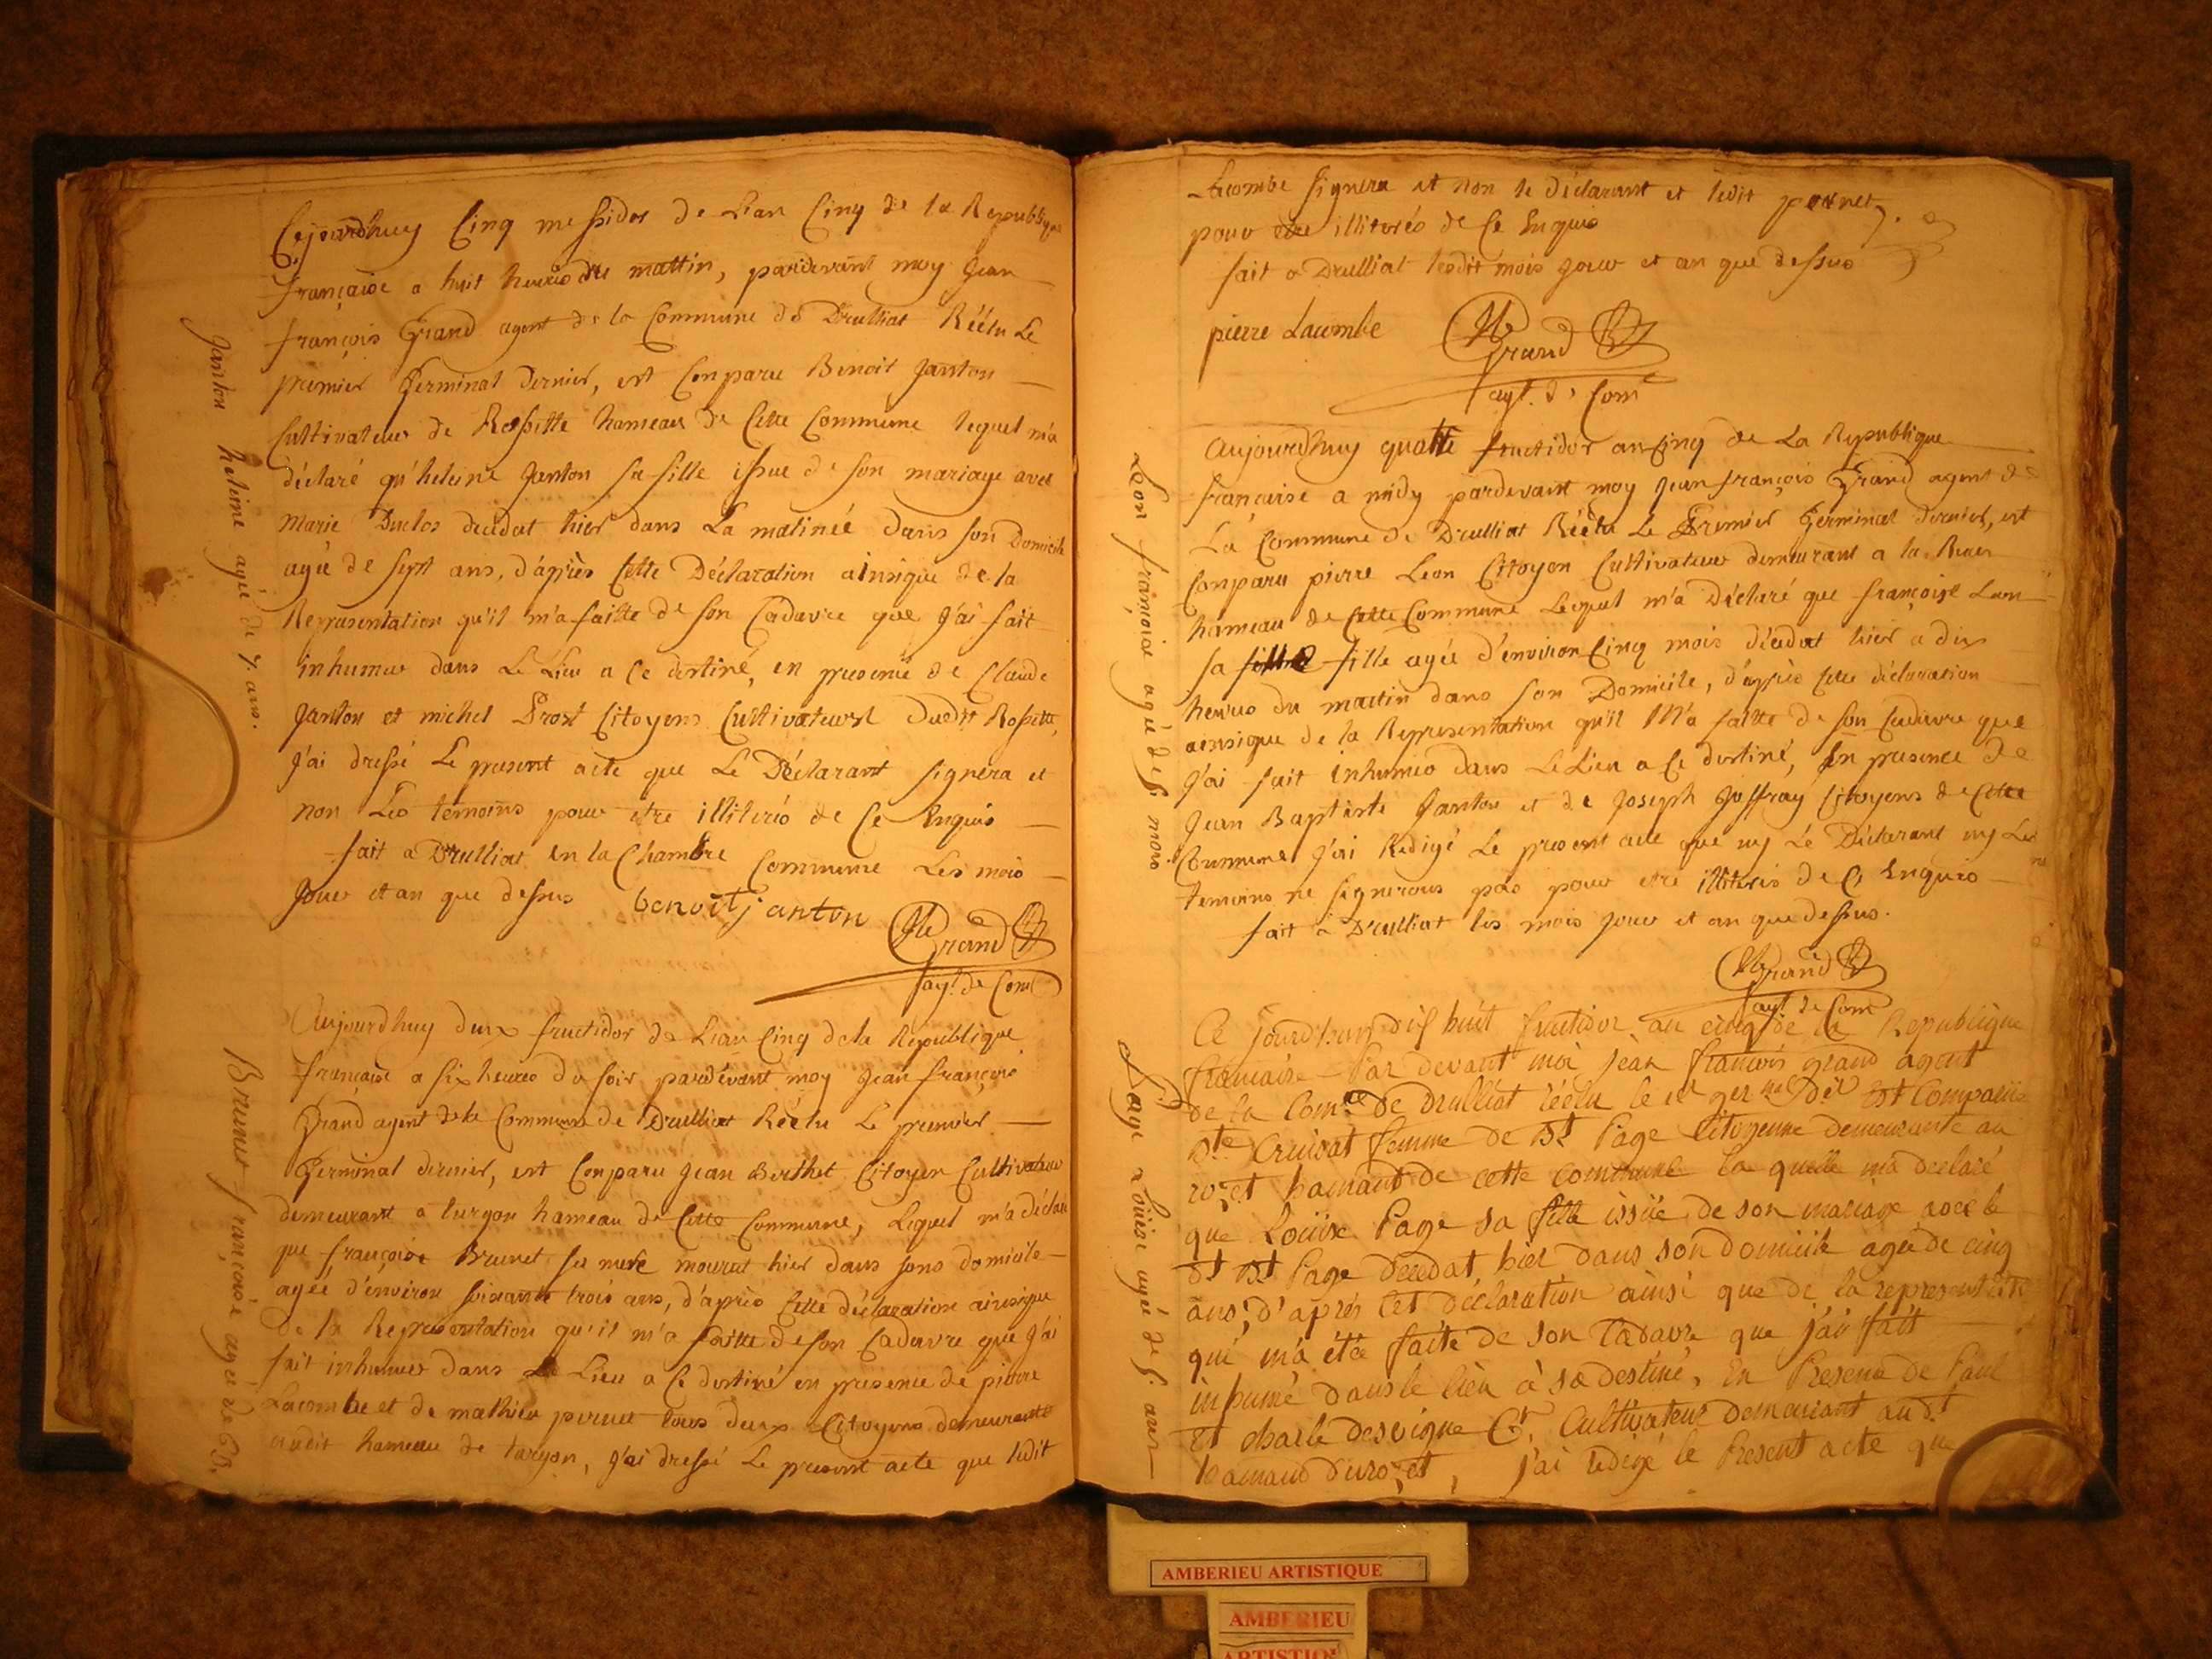 Cejourdhuy Cinq messidor de Lian Cinq de la Republique
française a huit heures du mattin, pardevant moy Jean
françois Grand agent de la Commune de Druilliat Réélu Le
premier Germinal dernier, est Conparu Benoit Janton
Cultivateur de Rossette hameau de Cette Commune lequel m'a
déclaré qu'heleine Janton sa fille issue de son mariage avec
Marie Duclos décédat hier dans La matineé dans son Domicile
agée de sept ans, d'après Cette Déclaration ainsique de la
Representation qu'il m'a faitte de son Cadavre que J'ai fait
inhumer dans Le Lieu a Ce destiné, en presence de Claude
Janton et michel Prost Citoyens Cultivateurs dudit Rossette,
J'ai dressé Le present acte que Le Déclarant signera et
non Les temoins pour etre illiterés de Ce Enquis
fait a Drulliat en la Chambre Commune Les mois
Jour et an que dessus benoit janton
Grand
agt. de Come
Janton heleine agée de 7. ans.
Aujourdhuy deux fructidor de Lian Cinq de la République
française a six heures du soir pardevant moy Jean françois
Grand agent de la Commune de Drulliat Réélu Le premier
Germinal dernier, est Conparu Jean Berthet Citoyen Cultivateur
demeurant a turgon hameau de Cette Commune, Lequel m'a déclaré
que françoise Brunet sa mere mourut hier dans sons domicile
agée d'environ soixante trois ans, d'après Cette déclaration ainsique
de la Representation qu'il m'a faitte de son Cadavre que J'ai
fait inhumer dans Le Lieu a Ce destiné en presence de pierre
Lacombe et de mathieu pernet tous deux Citoyens demeurants
audit hameau de turgon, J'ai dressé Le present acte que ledit
Brunet françoise agée de 63.
Lacombe signera et non le déclarant et ledit pernet
pour etre illiterés de Ce Enquis
fait a Drulliat lesdit mois jour et an que dessus
pierre Lacombe
Grand
agt. de Com
Aujourdhuy quatre fructidor an Cinq de La Republique
française a midy pardevant moy Jean françois Grand agent de
La Commune de Drulliat Réélu Le Premier Germinal dernier, est
Conparu pierre Leon Citoyen Cultivateur demeurant a la
hameau de Cette Commune Lequel m'a Déclaré que françoise Leon
sa fille agée d'environ Cinq mois décédat hier a dix
heures du mattin dans son Domicile, d'après Cette déclaration
ainsique de la Representation qu'il M'a faitte de son Cadavre que
J'ai fait inhumés dans Le Lieu a Ce destiné, En presence de
Jean Baptiste Janton et de Joseph Joffray Citoyens de Cette
Commune J'ai Redigé Le present acte que ny Le Déclarant ny Les
temoins ne signerons pas pour etre illiterés de Ce Enquis
fait a Drulliat les mois jour et an que dessus.
Grand
agt. de Come
Leon françoise agée de 5. mois
Ce jourdhuy dix huit fructidor an cinq de la Republique
francaise Par devant moi jean francois grand agent
de la Comne de drulliat réélu le 1er ger nal der Est Comparüe
Cruivat femme de Bt Page Citoyenne demeurante au
hamaut de cette commune la quelle ma declaré
que Loüise Page sa fille issüe de son mariage avec le
dt Bt Page decedat hier dans son domicile agée de cinq
ans; d'aprés Cet declaration ainsi que de la representation
qui m'a étée faite de son Cadavre que j'ai fait
inhumé dans le lieu à sæ destiné, En Presence de Paul
et charle desvigne Ct. Cultivateur demeurant au dt
hamaud , j'ai redigé le Present acte que
Page Loüise agée de 5. ans
AMBERIEU ARTISTIQUE
AMBERIEU
ARTISTIQUE